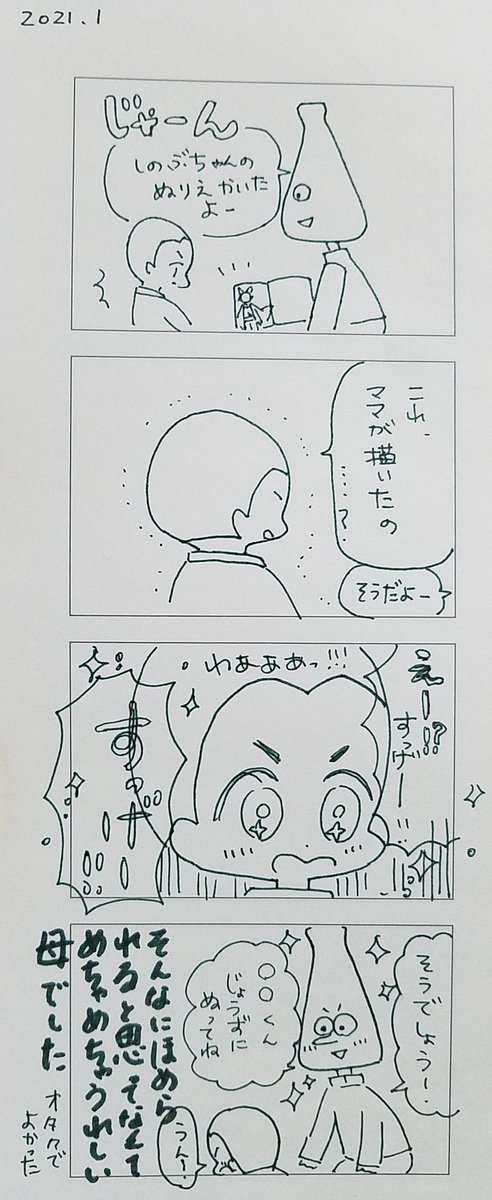 2021.1
じゃーん
しのぶちゃんの
ぬりえかいた
よー
これ、
ママが描いたの
……?
そうだよー
えー!!?
すっげー!!
わぁぁぁっ!!!
すっげー!!
そうでしょうー!
○○くん
じょうずに
ぬってね
うんー!
そんなにほめら
れると思ってなくて
めちゃめちゃうれしい
母でした
オタクで
よかった